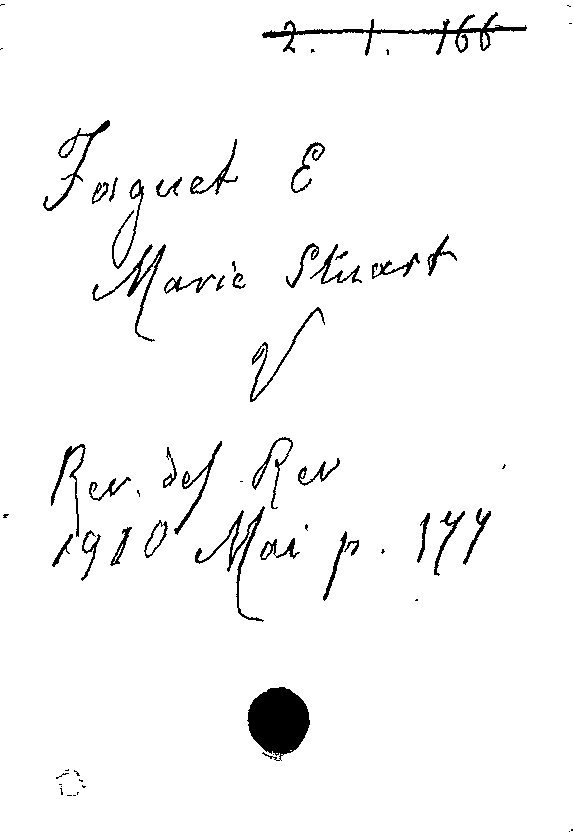 2. 1. 166
Faguet E
Marie Stuart
V
Rev. des Rev
1910 Mai p. 177